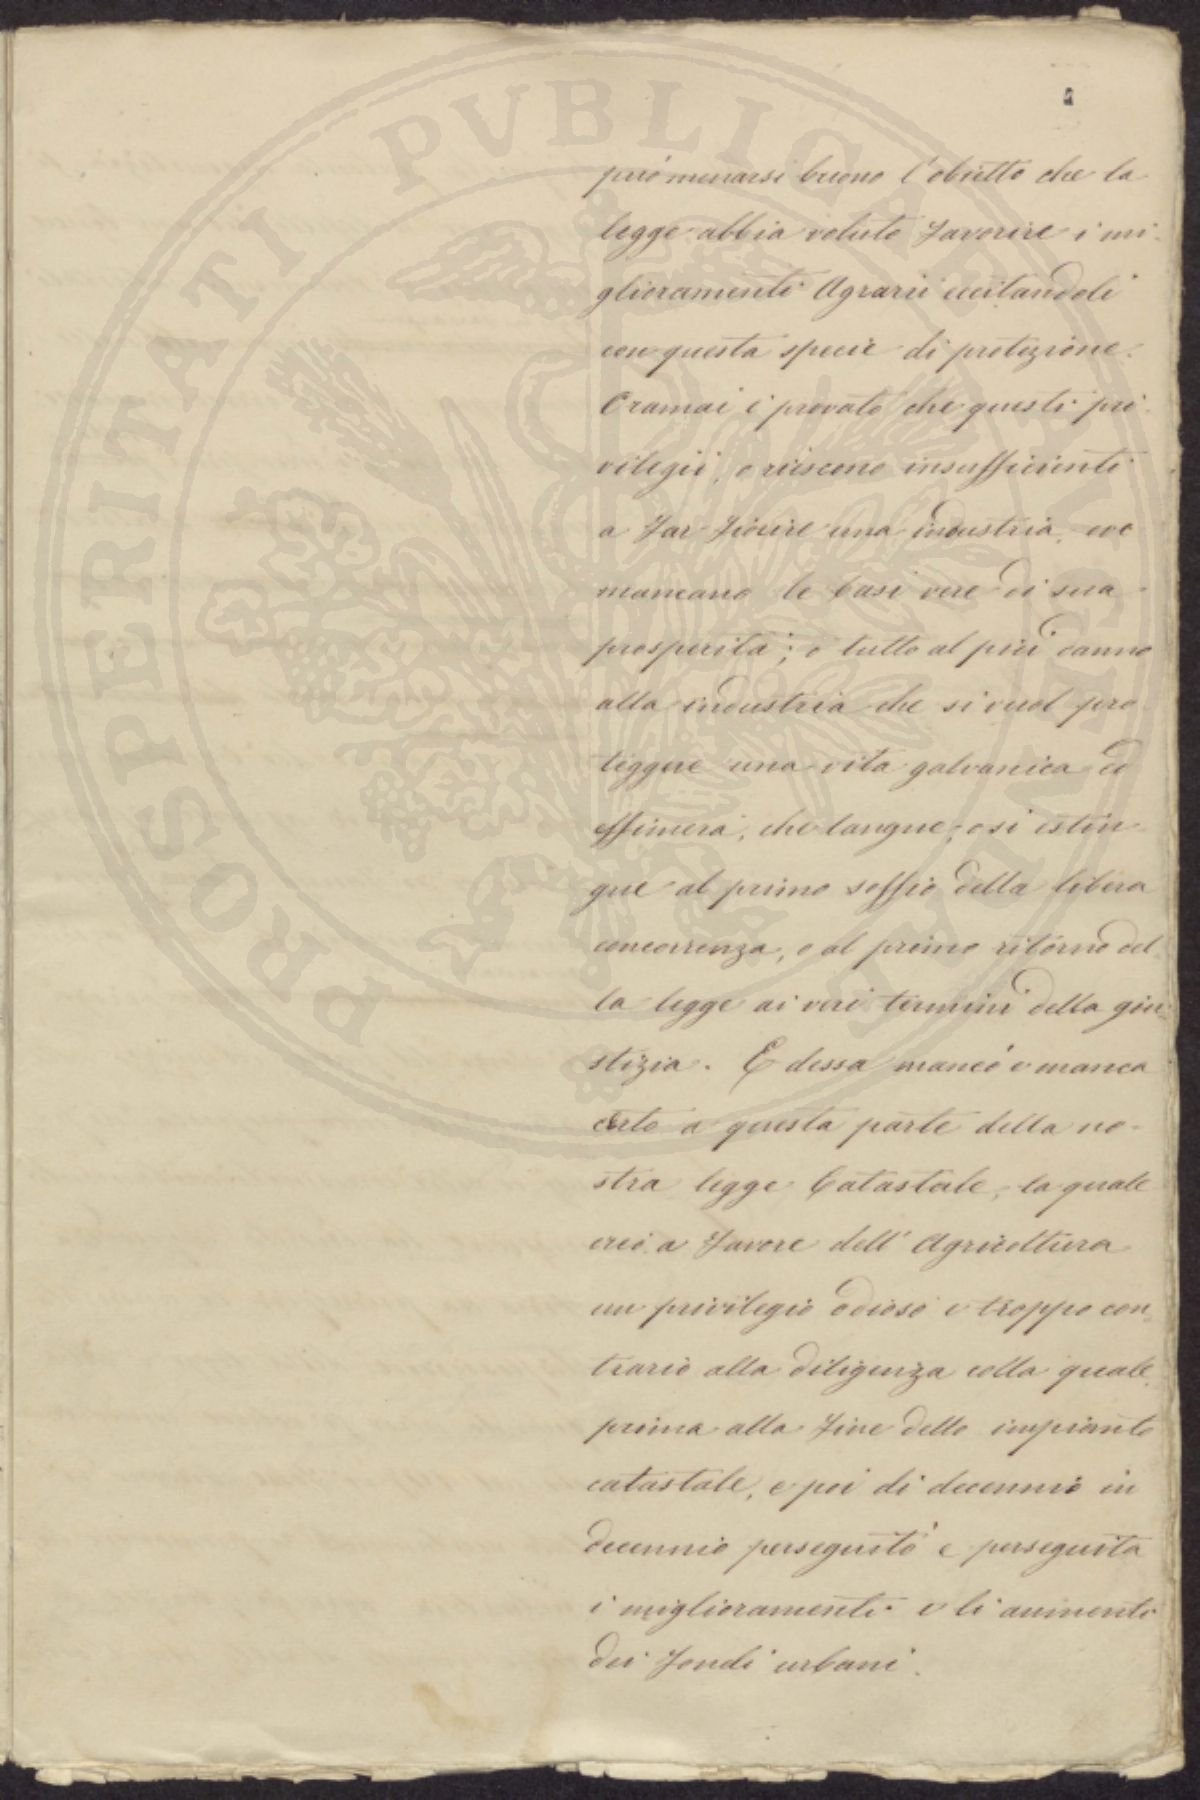 può menarsi buono l'obietto che la
legge abbia voluto favorire i mi-
glioramenti Agrarii eccitandoli
con questa specie di protezione.
Oramai è provato che questi pri-
vilegii, o riescono insufficienti
a far fiorire una industria, ove
mancano le basi vere di sua
prosperità; o tutto al più danno
alla industria che si vuol pro-
teggere una vita galvanica ed
effimera, che langue, e si estin-
gue al primo soffio della libera
concorrenza, o al primo ritorno del-
la legge ai veri termini della giu-
stizia. E dessa mancò e manca
certo a questa parte della no-
stra legge Catastale, la quale
creò a favore dell'Agricoltura
un privilegio odioso e troppo con-
trario alla diligenza colla quale
prima alla fine dello impianto
catastale, e poi di decennio in
decennio perseguitò e perseguita
i miglioramenti e li aumenti
dei fondi urbani.
PROSPERITATI PVBLICAE AVGENDAE